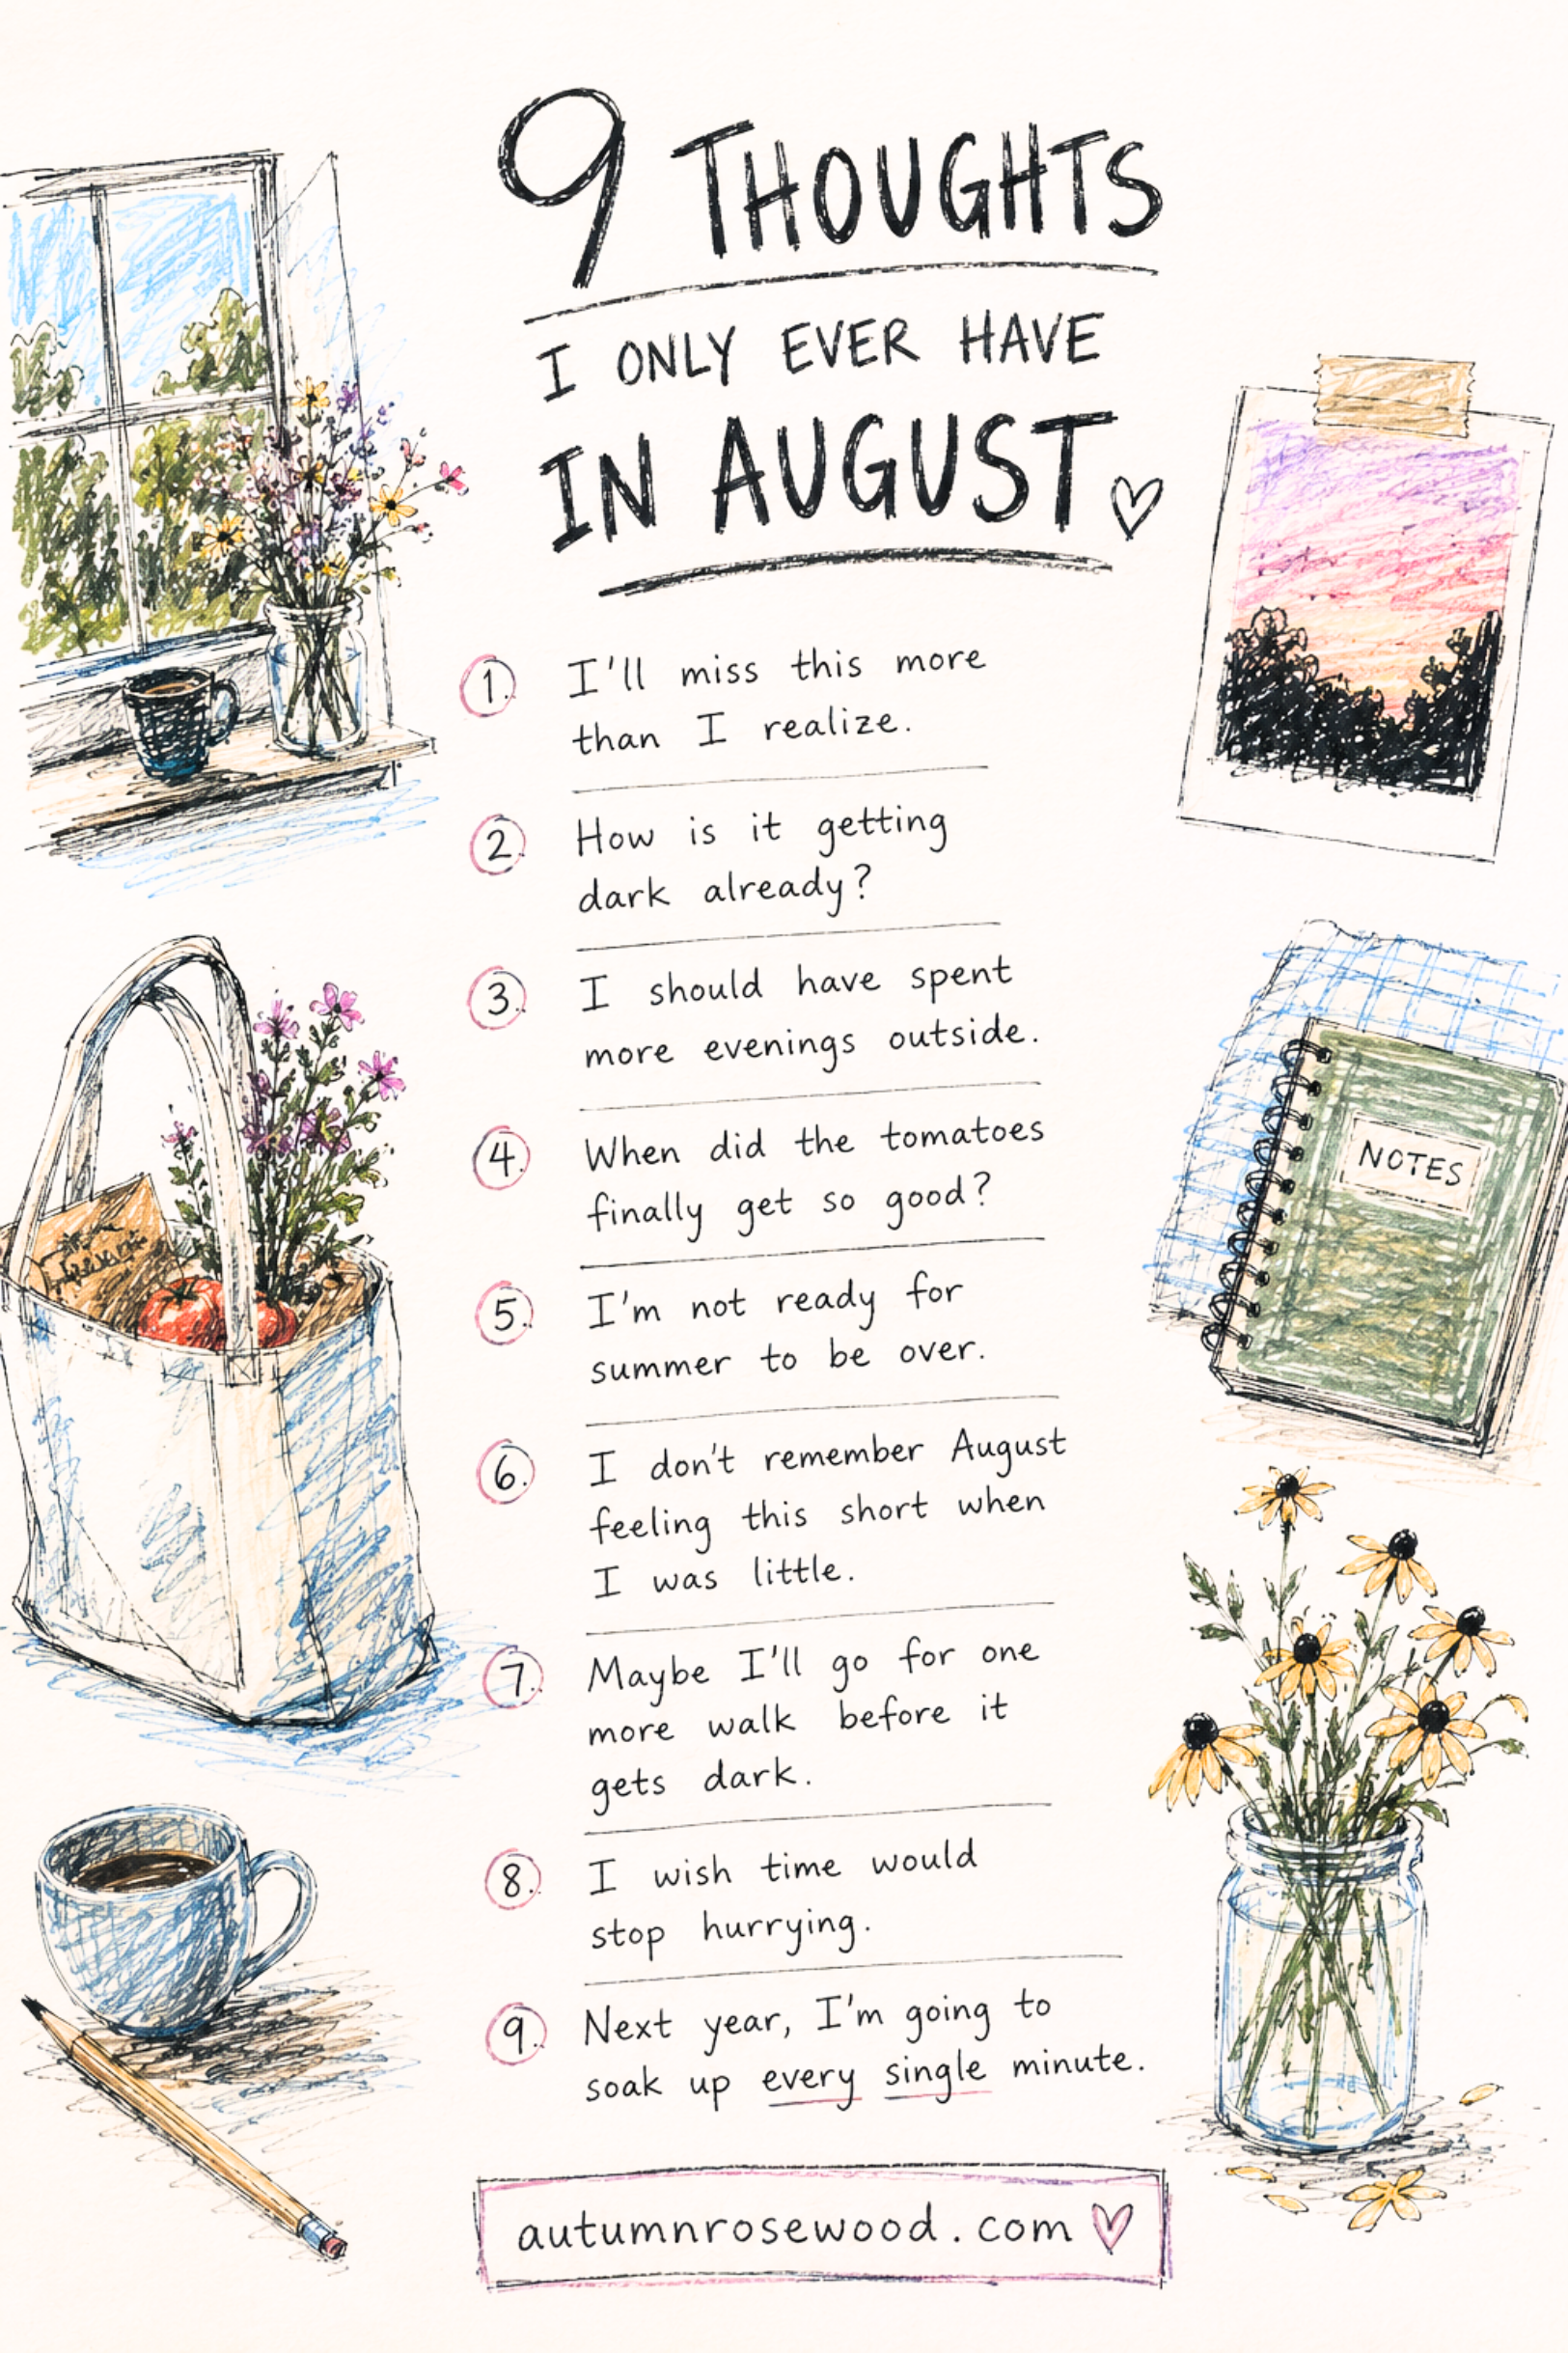 9 THOUGHTS
I ONLY EVER HAVE
IN AUGUST
1. I'll miss this more
than I realize.
2. How is it getting
dark already?
3. I should have spent
more evenings outside.
4. When did the tomatoes
finally get so good?
5. I'm not ready for
summer to be over.
6. I don't remember August
feeling this short when
I was little.
7. Maybe I'll go for one
more walk before it
gets dark.
8. I wish time would
stop hurrying.
9. Next year, I'm going to
soak up every single minute.
autumnrosewood.com
NOTES